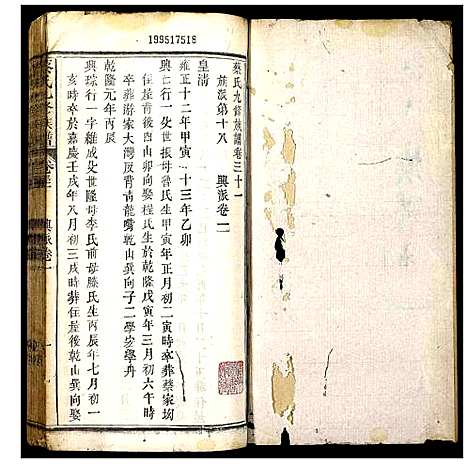 199517518
蔡氏九修族譜卷三十一
旅派第十八 興派卷一
皇清
雍正十二年甲寅 十三年乙卯
興 行一父世振母魯氏生甲寅年正月初二寅時卒葬蔡家坳
住屋後乾山巽向娶程氏生於乾隆戊寅年三月初六午時
卒葬游家大灣辰背青龍嘴乾山巽向子二學 學舟
乾隆元年丙辰
興琮行一字維成父世隆母李氏前母滕氏生丙辰年七月初一
亥時卒於嘉慶壬戌年八月初三戌時葬住屋後乾山巽向娶
蔡氏九修族譜 卷三 興派卷一